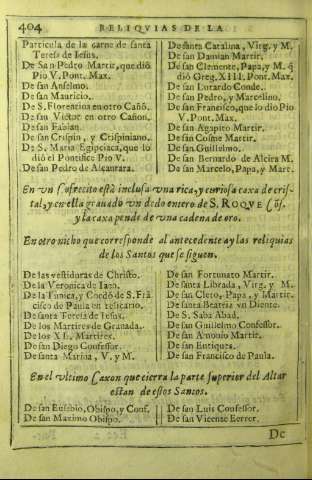 404 RELIQVIAS DE LA
Particula de la carne de santa
Teresa de Iesus.
De San Pedro Martir, que dió
Pio V. Pont. Max.
De san Anselmo.
De san Mauricio.
De S. Florentina en otro Cañō.
De san Victor en otro Cañon.
De san Fabian.
De san Crispin, y Crispiniano.
De S. Maria Egipciaca, que lo
dió el Pontifice Pio V.
De san Pedro de Alcantara.
De santa Catalina, Virg. y M.
De san Damian Martir.
De san Clemente, Papa, y M. q̄
dió Greg. XIII. Pont. Max.
De san Lutardo Conde.
De san Pedro, y Marcelino.
De san Francisco, que lo dio Pio
V. Pont. Max.
De san Agapito Martir.
De san Cosme Martir.
De san Guillelmo.
De san Bernardo de Alcira M.
De san Marcelo, Papa, y Mart.
En vn Cofrecito está inclusa vna rica, y curiosa caxa de cris-
tal, y en ella granado vn dedo entero de S. ROQVE Cōf.
y la caxa pende de vna cadena de oro.
En otro nicho que corresponde al antecedente ay las reliquias
de los Santos que se siguen.
De las vestiduras de Christo.
De la Veronica de Iaen.
De la Tunica, y Cordō de S. Frā
cisco de Paula en relicario.
De santa Teresa de Iesus.
De los Martires de Granada.
De los XL. Martires.
De san Diego Confessor.
De santa Marina, V. y M.
De san Fortunato Martir.
De santa Librada, Virg. y M.
De san Cleto, Papa, y Martir.
De santa Beatriz vn Diente.
De S. Saba Abad.
De san Guillelmo Confessor.
De san Antonio Martir.
De san Eutiques.
De san Francisco de Paula.
En el vltimo Caxon que cierra la parte superior del Altar
estan de estos Santos.
De san Eusebio, Obispo, y Conf.
De san Maximo Obispo.
De san Luis Confessor.
De san Vicente Ferrer.
De